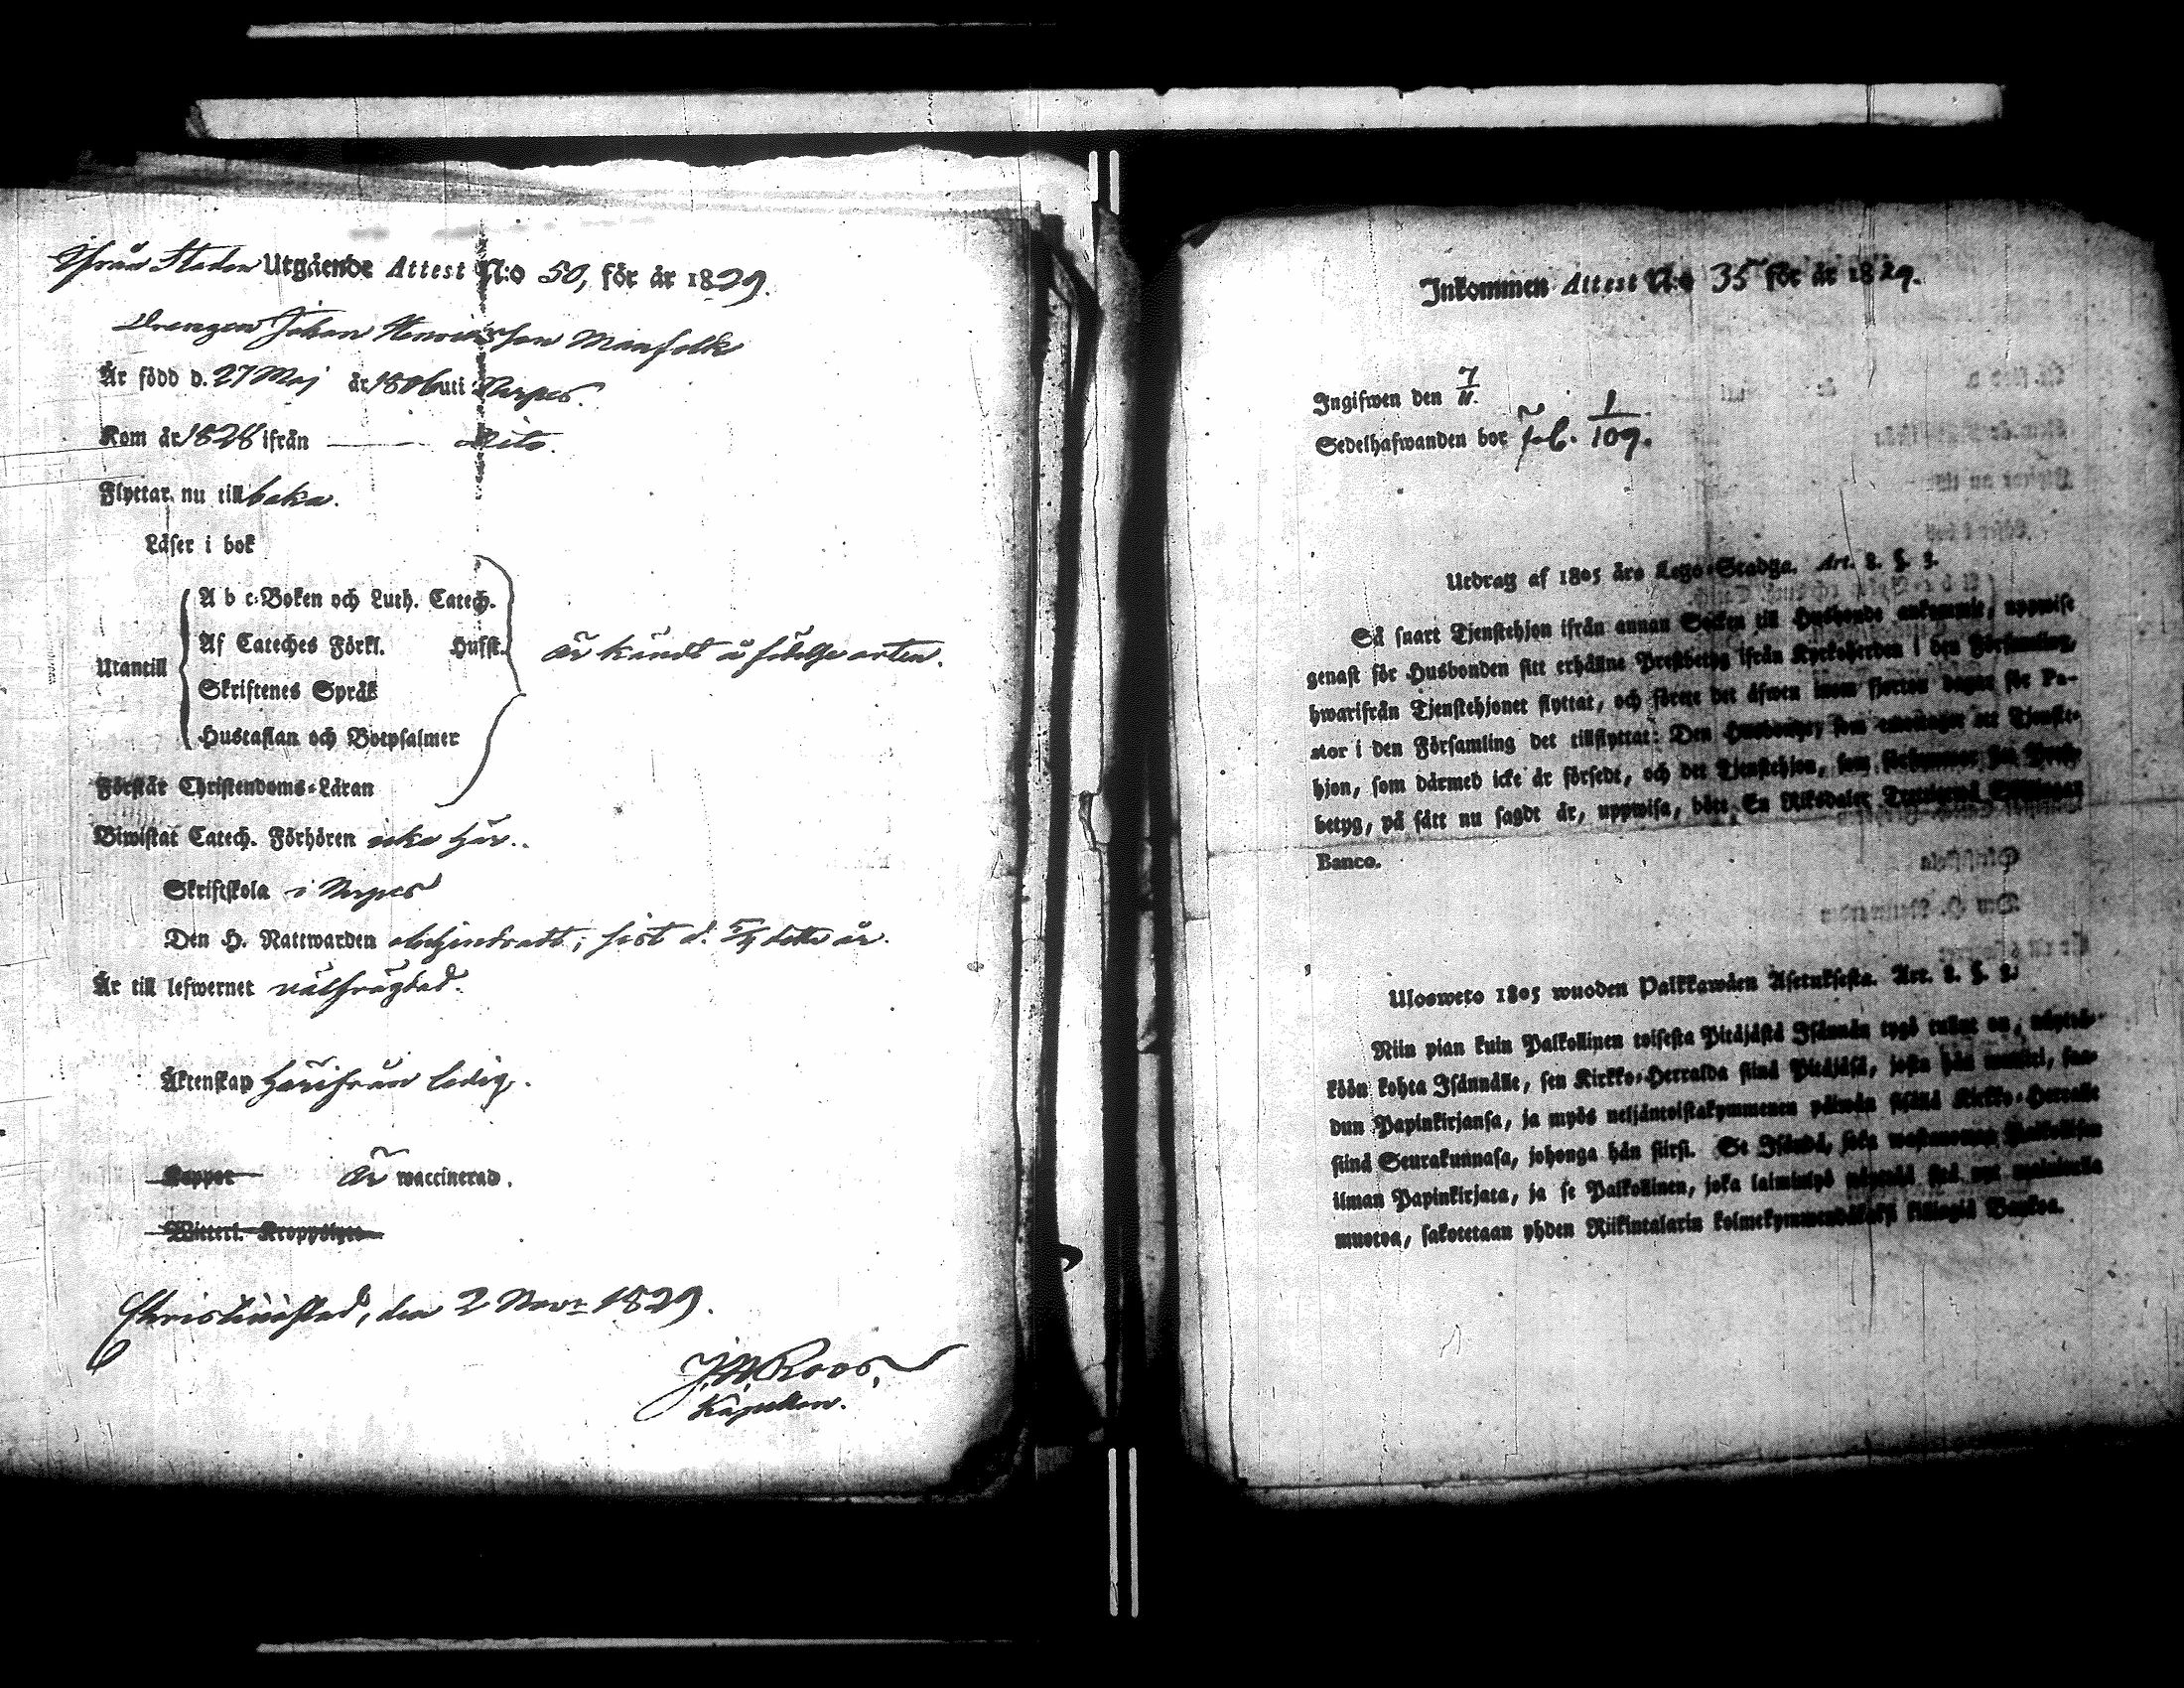 Ifrån Staden Utgående Attest N:o 50, för år 1829.
Drengen Johan Henricsson Manfolk
Är född d. 27 Maj år 1806 uti Nerpes.
Kom år 1828 ifrån — dito.
Flyttar nu till baka.
Läser i bok
A b c-Boken och Luth. Catech.
Af Cateches Förkl. Hufst.
Utantill är kändt å födelse orten.
Skriftenes Språk
Hustaflan och Botpsalmer
Förstår Christendoms-Läran
Biwistat Catech. Förhören icke här..
Skriftskola i Nerpes
Den H. Nattwarden obehindradt; sist d. dette år.
Är till lefwernet wälfrägdad.
Äktenskap härifrån ledig.
Koppor är waccinerad.
Witterl. Kroppslyte
Christinæstad, den 2 Novr 1829.
J. W. Roos,
Kapellan.
Inkommen Attest N:o 35 för år 1829.
Ingifwen den 7/11.
Sedelhafwanden bor fol. 1/109.
Utdrag af 1805 års Lego-Stadga. Art. 2. §. 3.
Så snart Tjenstehjon ifrån annan Socken till Husbonde ankommit, uppwise
genast för Husbonden sitt erhållne Prestbetyg ifrån Kyrkoherden i den Församling,
hwarifrån Tjenstehjonet flyttat, och förete det äfwen inom fjorton dagar för Pa-
stor i den Församling det tillflyttat: Den Husbonde, som emottager ett Tjenste-
hjon, som därmed icke är försedt, och det Tjenstehjon, som försummar sin Prest-
betyg, på sätt nu sagdt är, uppwisa, böte En Riksdaler Trettiotwå Skillingar
Banco.
Ulosweto 1805 wuoden Palkkawäen Asetuksesta. Art. 2. §. 3.
Niin pian kuin Palkollinen toisesta Pitäjästä Isännän tygö tullut on, näyttä-
köön kohta Isännälle, sen Kirkko-Herralda siinä Pitäjäsä, josta hän muutti, saa-
dun Papinkirjansa, ja myös neljäntoistakymmenen päiwän sisällä Kirkko-Herralle
siinä Seurakunnasa, johonga hän siirsi. Se Isändä, joka wastanottaa Palkollisen
ilman Papinkirjata, ja se Palkollinen, joka laiminlyö näyttää sitä nyt mainitulla
muotoa, sakotetaan yhden Riikintalarin kolmekymmendäkaksi killingiä Bankoa.